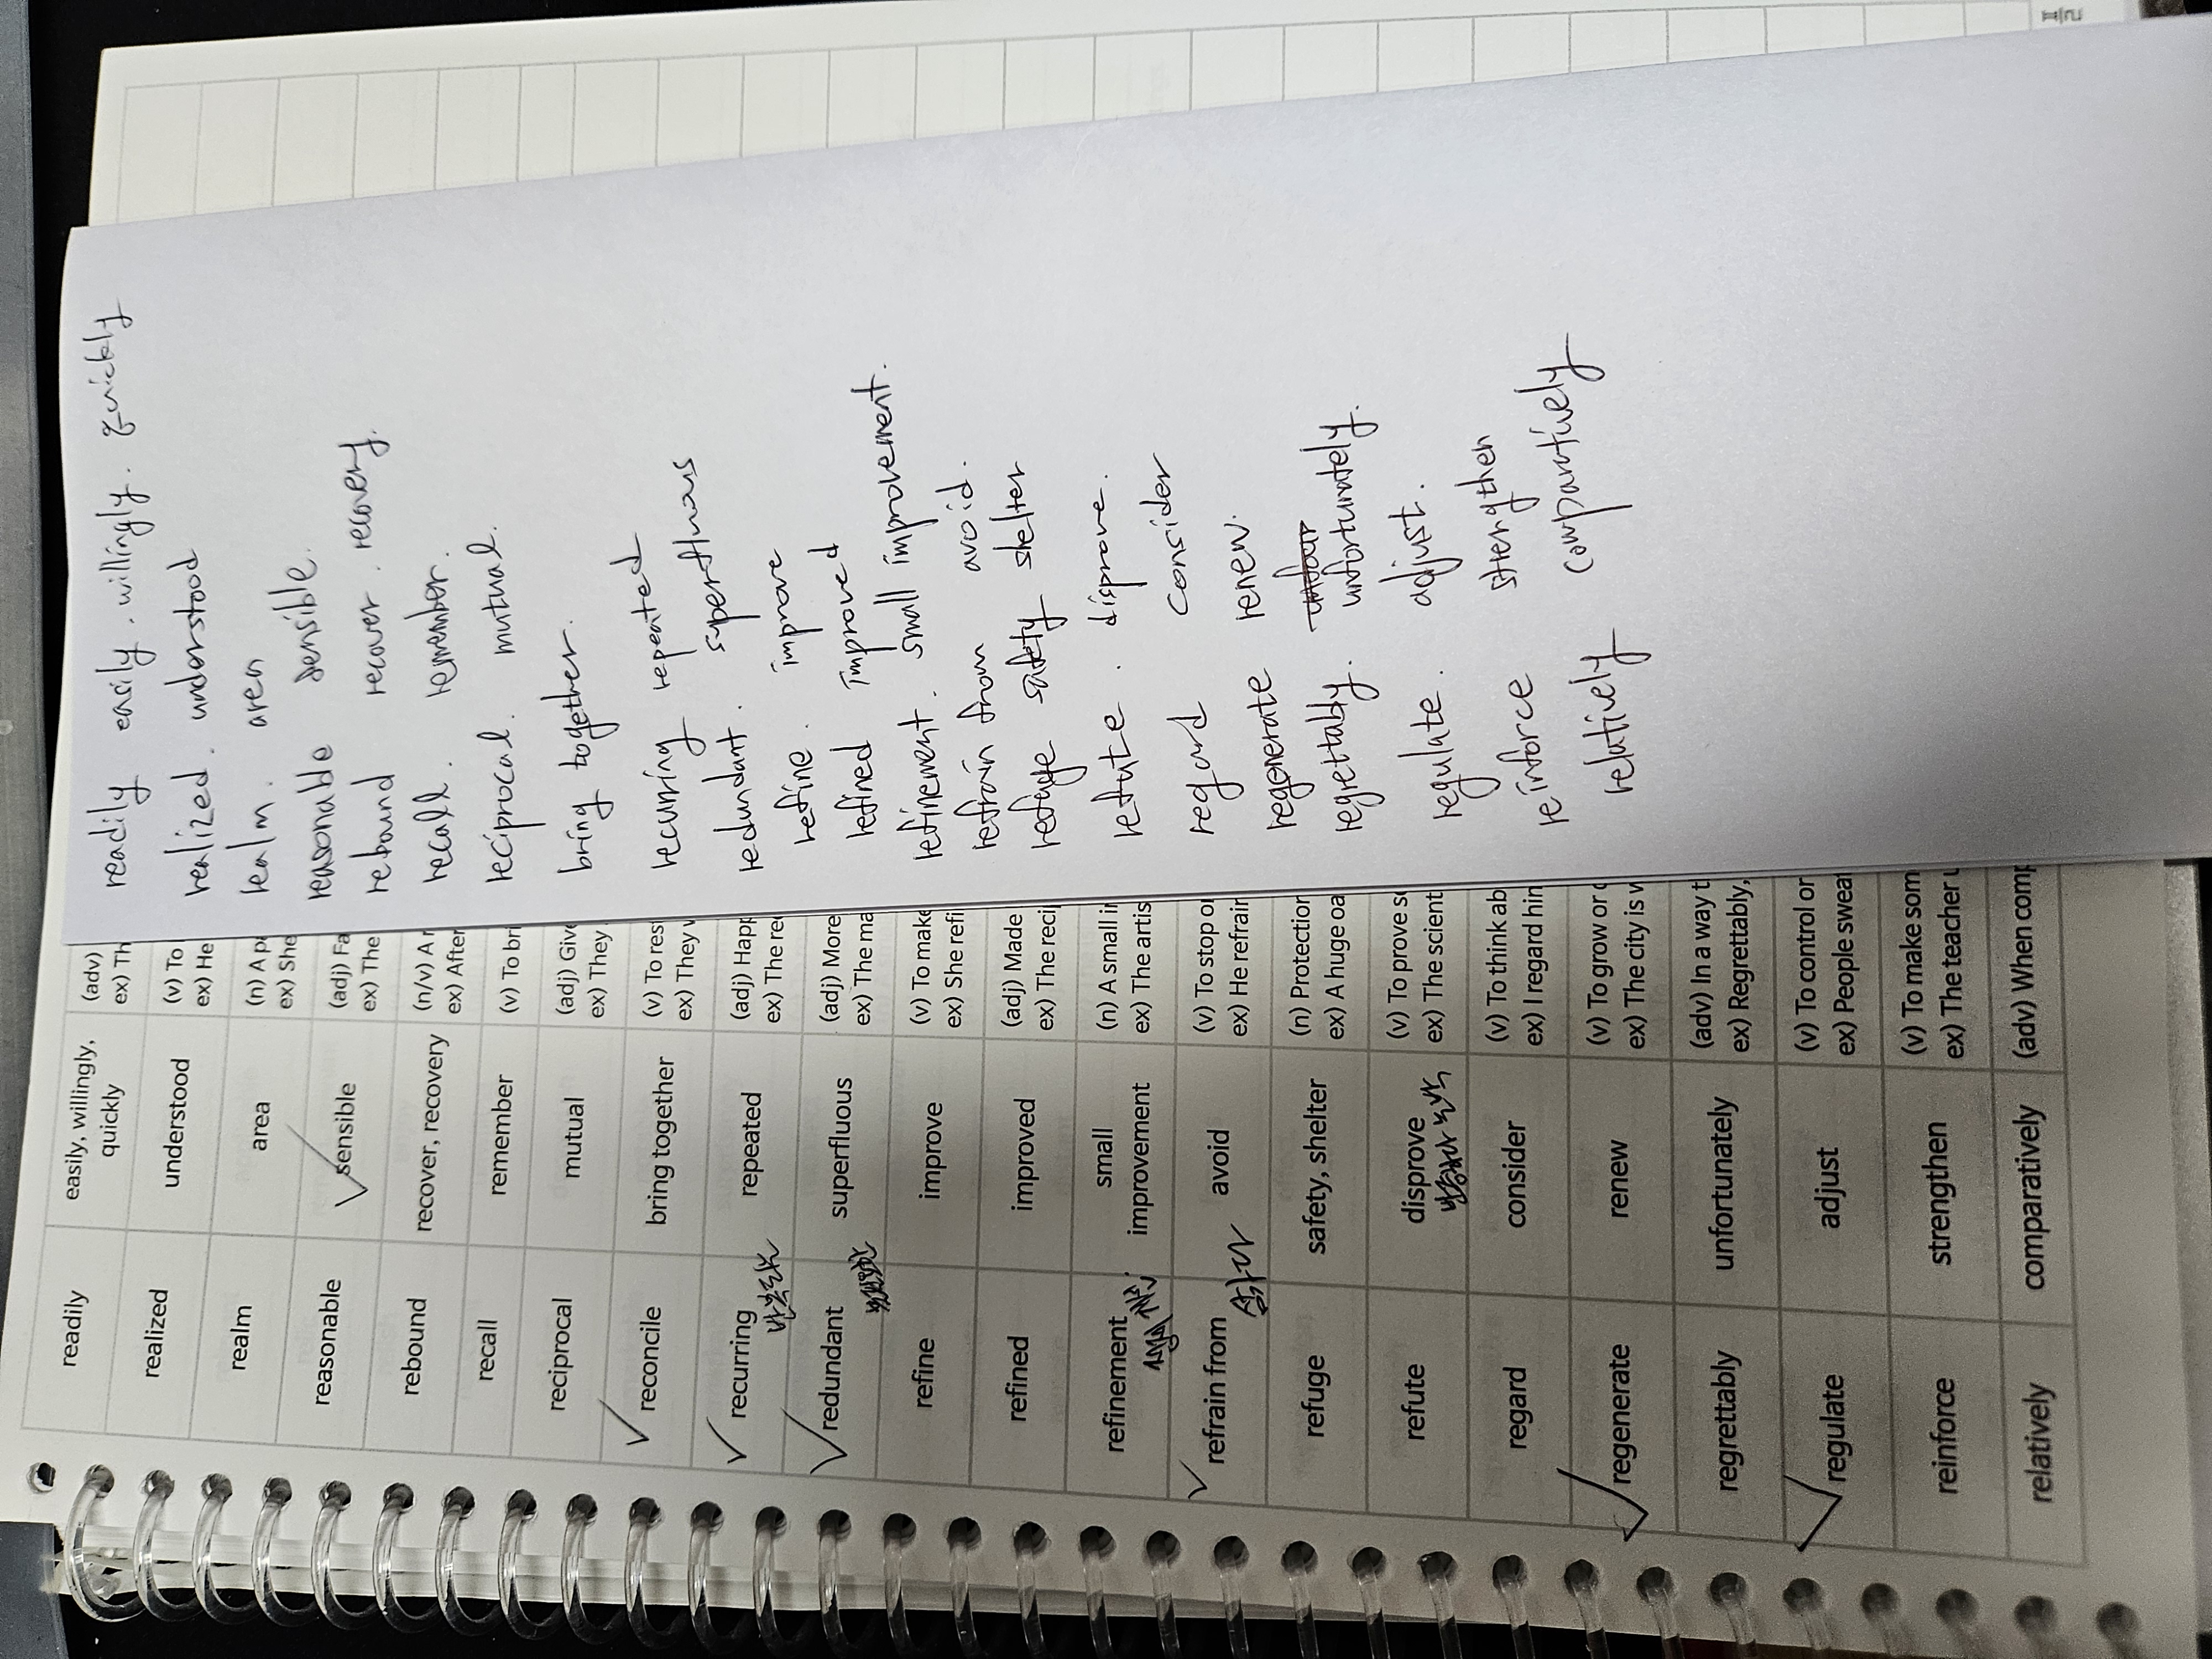 readily easily. willingly. quickly
realized. understood
realm. area
reasonable sensible.
rebound recover. recovery.
recall. remember.
reciprocal. mutual.
bring together.
recurring repeated
redundant. superfluous
refine. improve
refined improved
refinement. small improvement.
refrain from avoid.
refuge safety shelter
refute. disprove.
regard consider
regenerate renew.
regrettably. unfortunately.
regulate. adjust.
reinforce strengthen
relatively comparatively
readily easily, willingly, quickly (adv)
ex) Th
realized understood (v) To
ex) He
realm area (n) A p
ex) She
reasonable sensible (adj) Fa
ex) The
rebound recover, recovery (n/v) A r
ex) After
recall remember (v) To bri
reciprocal mutual (adj) Give
ex) They
reconcile bring together (v) To res
ex) They
recurring repeated (adj) Happ
반복되는
ex) The re
redundant superfluous (adj) More
ex) The ma
refine improve (v) To make
ex) She refi
refined improved (adj) Made
ex) The reci
refinement small improvement (n) A small i
ex) The artis
refrain from avoid (v) To stop o
삼가다
ex) He refrain
refuge safety, shelter (n) Protection
ex) A huge oa
refute disprove (v) To prove s
ex) The scient
regard consider (v) To think ab
ex) I regard him
regenerate renew (v) To grow or
ex) The city is
regrettably unfortunately (adv) In a way t
ex) Regrettably,
regulate adjust (v) To control or
ex) People sweat
reinforce strengthen (v) To make som
ex) The teacher
relatively comparatively (adv) When comp